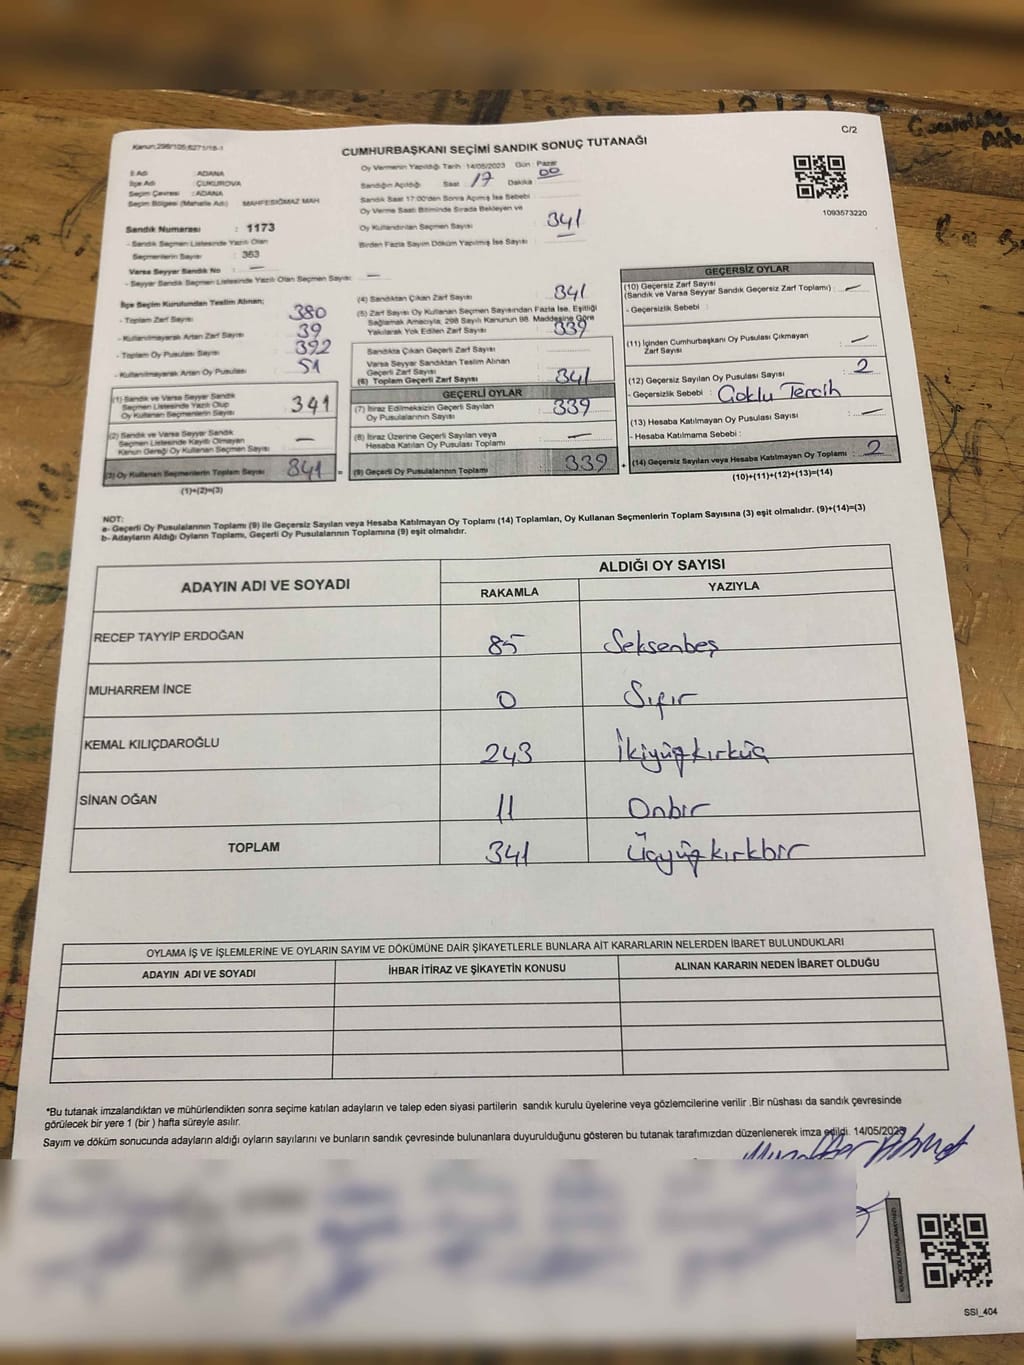 Kanun;298/105;6271/16-1
C/2
CUMHURBAŞKANI SEÇİMİ SANDIK SONUÇ TUTANAĞI
İl Adı : ADANA
İlçe Adı : ÇUKUROVA
Seçim Çevresi : ADANA
Seçim Bölgesi (Mahalle Adı) MAHFESIĞMAZ MAH
Sandık Numarası : 1173
- Sandık Seçmen Listesinde Yazılı Olan
Seçmenlerin Sayısı : 363
Varsa Seyyar Sandık No : —
- Seyyar Sandık Seçmen Listesinde Yazılı Olan Seçmen Sayısı: —
Oy Vermenin Yapıldığı Tarih :14/05/2023 Gün : Pazar
Sandığın Açıldığı Saat : 17 Dakika : 00
Sandık Saat 17:00'den Sonra Açılmış İse Sebebi
Oy Verme Saati Bitiminde Sırada Bekleyen ve
Oy Kullandırılan Seçmen Sayısı 341
Birden Fazla Sayım Döküm Yapılmış İse Sayısı : —
1093573220
İlçe Seçim Kurulundan Teslim Alınan;
- Toplam Zarf Sayısı : 380
- Kullanılmayarak Artan Zarf Sayısı : 39
- Toplam Oy Pusulası Sayısı : 392
- Kullanılmayarak Artan Oy Pusulası : 51
(1) Sandık ve Varsa Seyyar Sandık
Seçmen Listesinde Yazılı Olup
Oy Kullanan Seçmenlerin Sayısı : 341
(2) Sandık ve Varsa Seyyar Sandık
Seçmen Listesinde Kayıtlı Olmayan
Kanun Gereği Oy Kullanan Seçmen Sayısı : —
(3) Oy Kullanan Seçmenlerin Toplam Sayısı : 341 =
(1)+(2)=(3)
(4) Sandıktan Çıkan Zarf Sayısı : 341
(5) Zarf Sayısı Oy Kullanan Seçmen Sayısından Fazla İse, Eşitliği
Sağlamak Amacıyla; 298 Sayılı Kanunun 98. Maddesine Göre
Yakılarak Yok Edilen Zarf Sayısı : 339
Sandıkta Çıkan Geçerli Zarf Sayısı :
Varsa Seyyar Sandıktan Teslim Alınan
Geçerli Zarf Sayısı :
(6) Toplam Geçerli Zarf Sayısı : 341
GEÇERLİ OYLAR
(7) İtiraz Edilmeksizin Geçerli Sayılan
Oy Pusulalarının Sayısı : 339
(8) İtiraz Üzerine Geçerli Sayılan veya
Hesaba Katılan Oy Pusulası Toplamı : —
(9) Geçerli Oy Pusulalarının Toplamı : 339 +
GEÇERSİZ OYLAR
(10) Geçersiz Zarf Sayısı
(Sandık ve Varsa Seyyar Sandık Geçersiz Zarf Toplamı) : —
- Geçersizlik Sebebi :
(11) İçinden Cumhurbaşkanı Oy Pusulası Çıkmayan
Zarf Sayısı : —
(12) Geçersiz Sayılan Oy Pusulası Sayısı : 2
- Geçersizlik Sebebi : Çoklu Tercih
(13) Hesaba Katılmayan Oy Pusulası Sayısı : —
- Hesaba Katılmama Sebebi :
(14) Geçersiz Sayılan veya Hesaba Katılmayan Oy Toplamı : 2
(10)+(11)+(12)+(13)=(14)
NOT:
a- Geçerli Oy Pusulalarının Toplamı (9) ile Geçersiz Sayılan veya Hesaba Katılmayan Oy Toplamı (14) Toplamları, Oy Kullanan Seçmenlerin Toplam Sayısına (3) eşit olmalıdır. (9)+(14)=(3)
b- Adayların Aldığı Oyların Toplamı, Geçerli Oy Pusulalarının Toplamına (9) eşit olmalıdır.
ADAYIN ADI VE SOYADI
ALDIĞI OY SAYISI
RAKAMLA YAZIYLA
RECEP TAYYİP ERDOĞAN 85 Seksenbeş
MUHARREM İNCE 0 Sıfır
KEMAL KILIÇDAROĞLU 243 İkiyüzkırküç
SİNAN OĞAN 11 Onbir
TOPLAM 341 Üçyüzkırkbir
OYLAMA İŞ VE İŞLEMLERİNE VE OYLARIN SAYIM VE DÖKÜMÜNE DAİR ŞİKAYETLERLE BUNLARA AİT KARARLARIN NELERDEN İBARET BULUNDUKLARI
ADAYIN ADI VE SOYADI İHBAR İTİRAZ VE ŞİKAYETİN KONUSU ALINAN KARARIN NEDEN İBARET OLDUĞU
*Bu tutanak imzalandıktan ve mühürlendikten sonra seçime katılan adayların ve talep eden siyasi partilerin sandık kurulu üyelerine veya gözlemcilerine verilir .Bir nüshası da sandık çevresinde
görülecek bir yere 1 (bir ) hafta süreyle asılır.
Sayım ve döküm sonucunda adayların aldığı oyların sayılarını ve bunların sandık çevresinde bulunanlara duyurulduğunu gösteren bu tutanak tarafımızdan düzenlenerek imza edildi. 14/05/2023
SSI_404